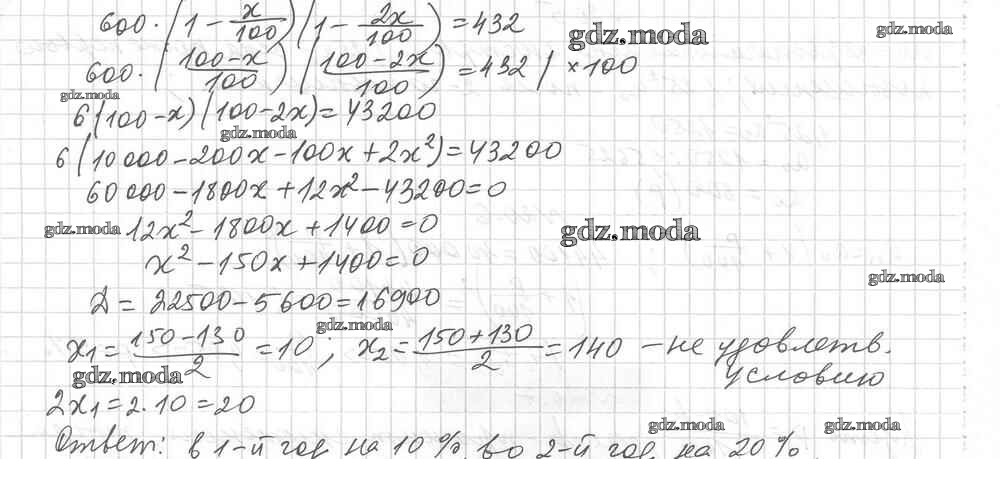 600 · (1 - x/100)(1 - 2x/100) = 432
gdz.moda
600 · (100-x/100)(100-2x/100) = 432 / ×100
gdz.moda
6(100-x)(100-2x) = 43200
gdz.moda
6(10000-200x-100x+2x²)=43200
60000-1800x+12x²-43200=0
gdz.moda
12x²-1800x+1400=0
gdz.moda
x²-150x+1400=0
gdz.moda
D = 22500-5600=16900
gdz.moda
x₁ = 150-130/2 = 10; x₂ = 150+130/2 = 140 - не удовлетв.
условию
gdz.moda
2x₁=2·10=20
gdz.moda
gdz.moda
Ответ: в 1-й год на 10%, во 2-й год на 20%